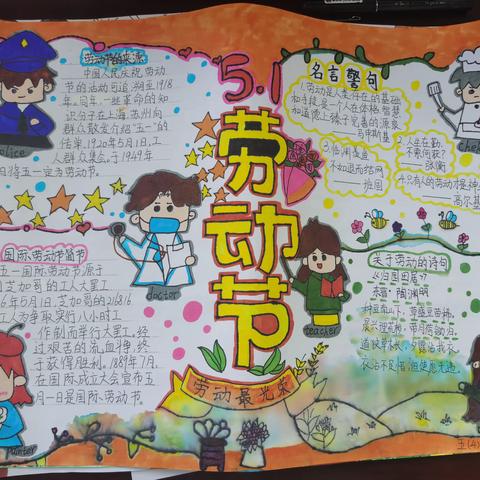 5.1
劳动节
劳动最光荣
劳动节的来源
中国人民庆祝劳动
节的活动可追溯至1918
年。同年，一些革命的知
识分子在上海、苏州向
群众散发介绍"五一"的
传单。1920年5月1日，工
人群众集会。于1949年
日将五一定为劳动节。
police
国际劳动节简节
五一国际劳动节源于
芝加哥的工人大罢工
6年5月1日，芝加哥的21.6816
工人为争取实行八小时工
作制而举行大罢工，经
过艰苦的流血斗争，终
于获得胜利。1889年7月，
在国际成立大会宣布五
月一日是国际劳动节。
painter
doctor
名言警句
1.劳动是人类存在的基础
和手段，是一个人在体格、智慧
和道德上臻于完善的源泉
——马申斯基
2.人生在勤，
不索何获？
——张衡
3.临渊羡鱼
不如退而结网
——班固
4.只有人的劳动才是神
——高尔基
chef
teacher
关于劳动的诗句
《归园田居》
东晋·陶渊明
种豆南山下，草盛豆苗稀。
晨兴理荒秽，带月荷锄归。
道狭草木长，夕露沾我衣。
衣沾不足惜，但使愿无违。
五(4)